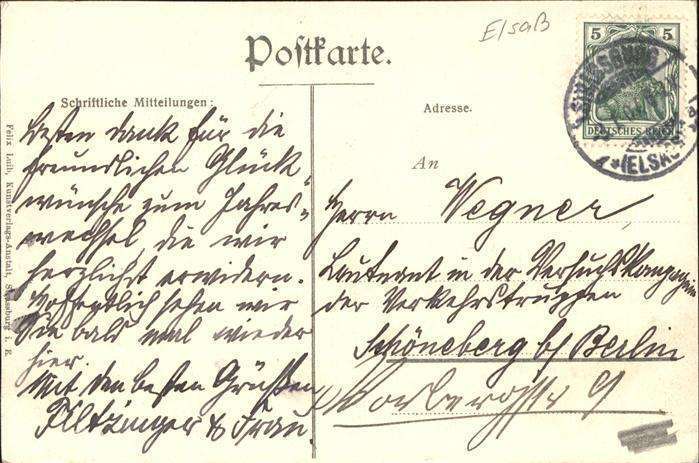 Elsaß
Postkarte.
5 5
DEUTSCHES REICH
STRASSBURG
* (ELSASS)
Schriftliche Mitteilungen:
Besten Dank für die
freundlichen Glück-
wünsche zum Jahres-
wechsel, die wir
herzlichst erwidern.
Hoffentlich sehen wir
Sie bald mal wieder
hier.
Mit den besten Grüßen
Filtzinger & Frau
Adresse.
An
Herrn Wegner,
Leutnant in der Versuchskompagnie
der Verkehrstruppen
Schöneberg b/ Berlin
9
Felix Luib, Kunstverlags-Anstalt, Strassburg i. E.